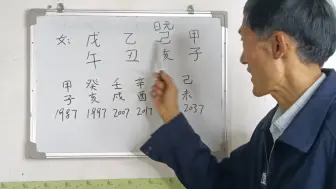 日元
女: 戊 乙 己 甲
午 丑 亥 子
甲 癸 壬 辛 己
子 亥 戌 酉 未
1987 1997 2007 2017 2037